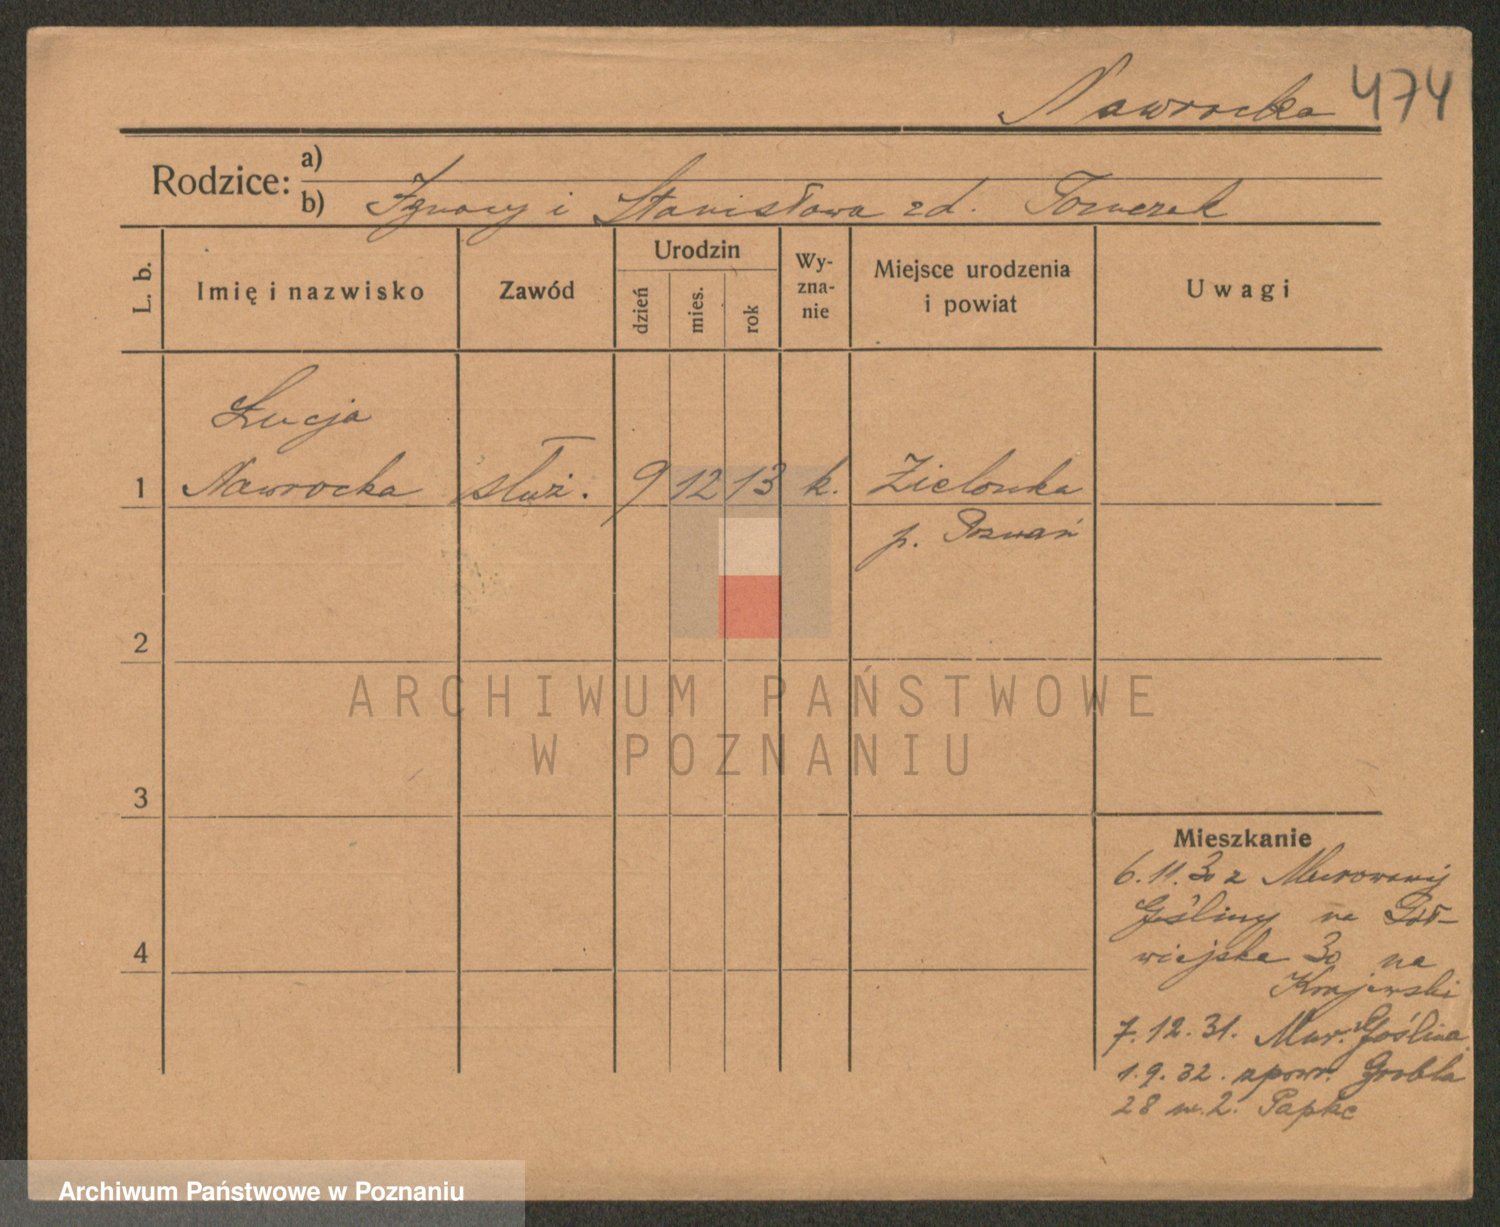 Nawrocka 474
Rodzice: a)
b) Ignacy i Stanisława zd. Tomczak
L. b.
Imię i nazwisko
Zawód
Urodzin
dzień
mies.
rok
Wy-
zna-
nie
Miejsce urodzenia
i powiat
Uwagi
Łucja
1 Nawrocka służ. 9 12 13 k. Zielonka
p. Poznań
2
ARCHIWUM PAŃSTWOWE
W POZNANIU
3
Mieszkanie
6.11.30 z Murowanej
Gośliny na Pół-
wiejska 30 na
Krajewski
4
7.12.31. Mur. Goślina
1.9.32. zpowr. Grobla
28 m. 2. Papke
Archiwum Państwowe w Poznaniu